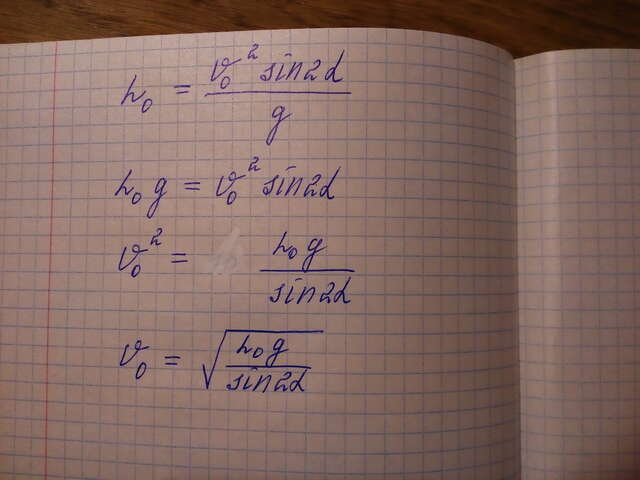 h₀ = v₀² sin2α / g
h₀ g = v₀² sin2α
v₀² = h₀ g / sin2α
v₀ = √(h₀ g / sin2α)